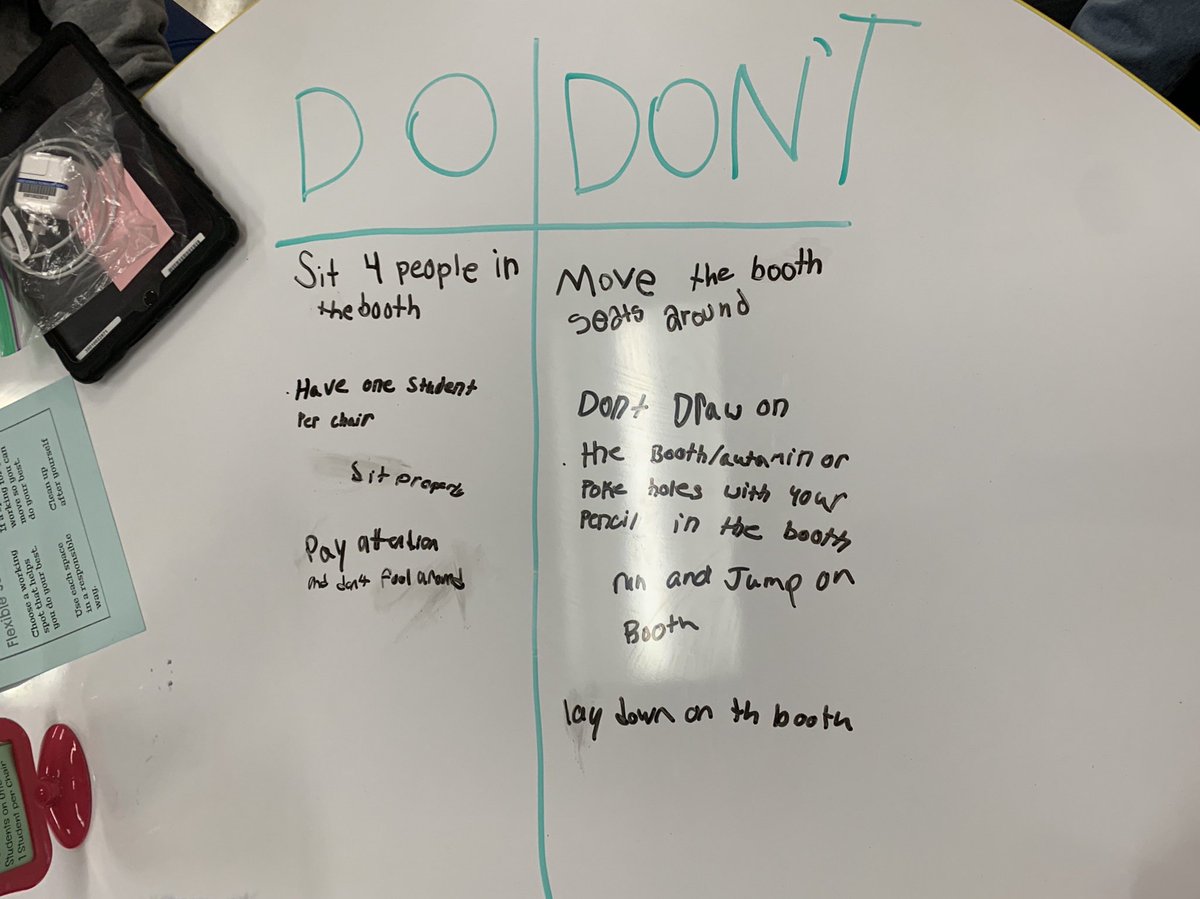 DO
DON'T
Sit 4 people in
the booth
. Have one Student
Per chair
Sit propery
Pay attention
and don't fool around
Move the booth
seats around
Dont Draw on
. the Booth/
or
Poke holes with your
Pencil in the booth
run and Jump on
Booth
lay down on th booth
Flexible
Choose a working
spot that helps
you do your best.
Use each space
in a responsible
way.
working
move so you can
do your best.
Clean up
after yourself
Students on the
1 Student per chair